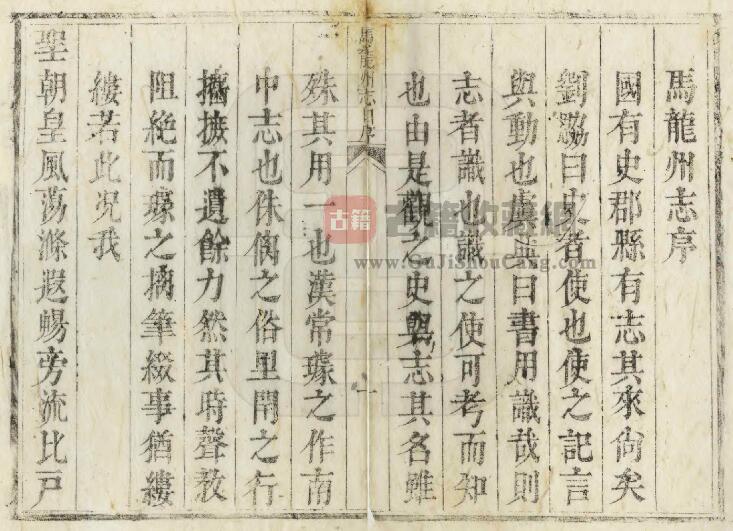 馬龍州志序
國有史郡縣有志其來尙矣
劉勰曰史者使也使之記言
與動也虞書曰書用識哉則
志者識也識之使可考而知
也由是觀之史與志其名雖
馬龍州志序
一
殊其用一也漢常璩之作南
中志也侏㒧之俗里閈之行
攟摭不遺餘力然其時聲教
阻絶而璩之摛筆綴事猶縷
縷若此况我
聖朝皇風蕩滌遐暢旁流比戸
古籍
古籍收藏網
www.GuJiShouCang.com